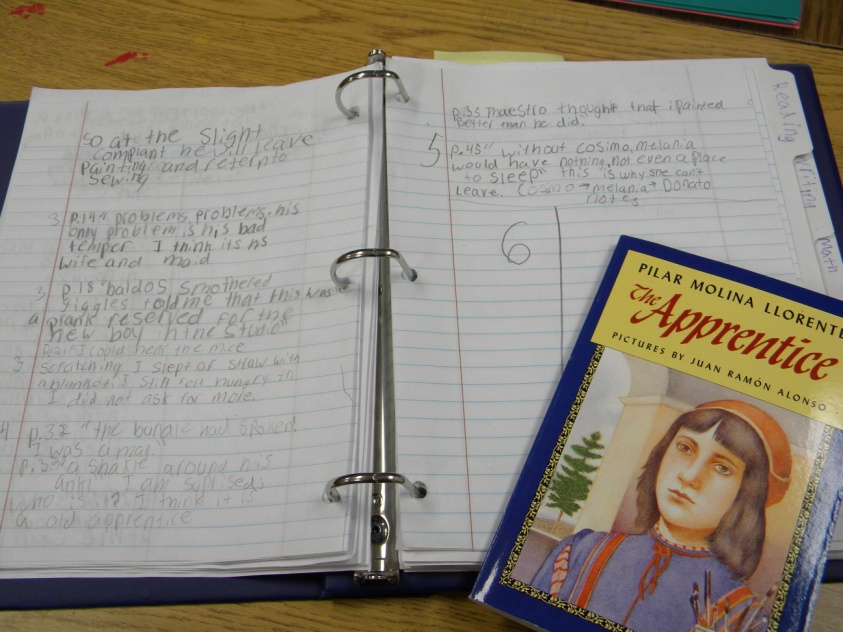 so at the slight
complant he will leave
Painting and return to
sewing
3 p.14 "problems, problems, his
only problem is his bad
temper. I think its his
wife and maid
3 p.18 "baldos smothered
giggles told me that this was
a prank reserved for the
new boy in the studio"
3 p.21 I could hear the mice
scratching. I slept of straw with
a blanket. I still felt hungry
I did not ask for more.
4 p.32 "the bundle had spoked
I was a man"
p.33 a shakle around his
ankl" I am suprised
who is it? I think it is
a old apprentice
p.35 maestro thought that i painted
better man he did."
5 p.45 "without cosimo, melania
would have nothing, not even a place
to sleep" this is why she can't
Leave. Cosimo → melania → Donato
notes
6
Reading
writing
math
PILAR MOLINA LLORENTE
The
Apprentice
PICTURES BY JUAN RAMÓN ALONSO